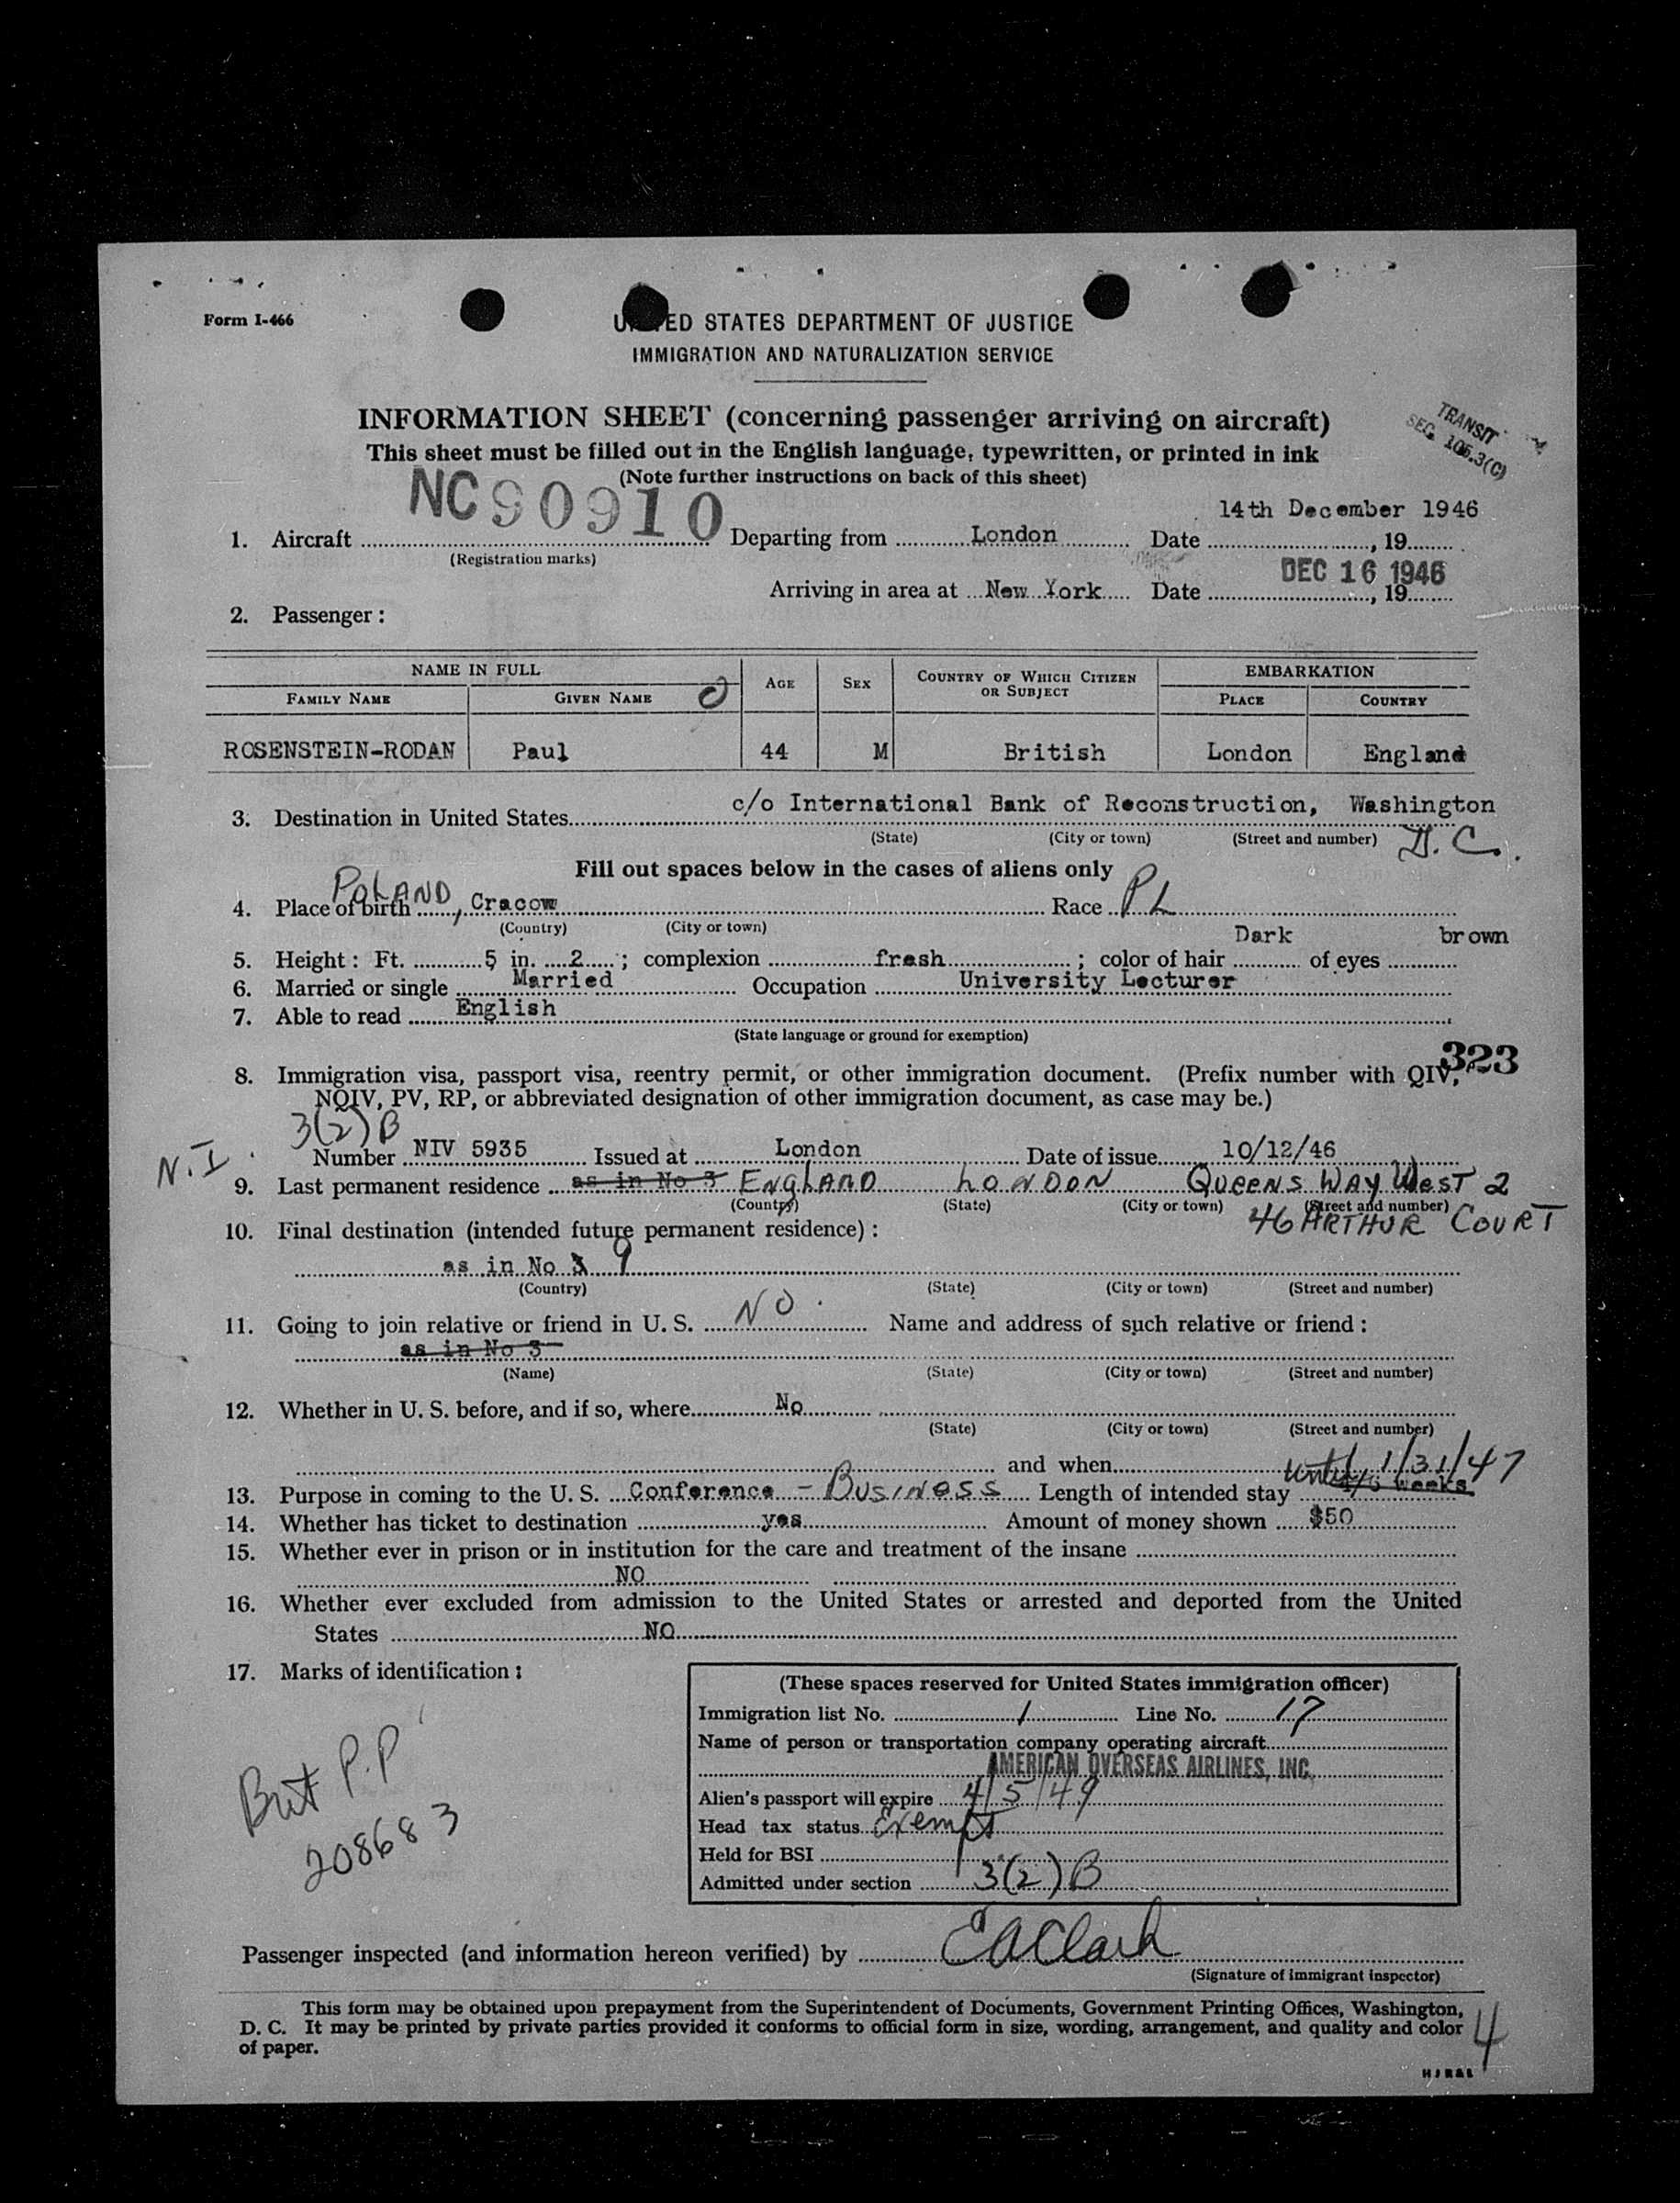 Form I-466
UNITED STATES DEPARTMENT OF JUSTICE
IMMIGRATION AND NATURALIZATION SERVICE
INFORMATION SHEET (concerning passenger arriving on aircraft)
TRANSIT
SEC. 105.3(C)
This sheet must be filled out in the English language, typewritten, or printed in ink
(Note further instructions on back of this sheet)
14th December 1946
1. Aircraft NC 90910 Departing from London Date , 19
(Registration marks)
DEC 16 1946
Arriving in area at New York Date , 19
2. Passenger:
NAME IN FULL AGE SEX COUNTRY OF WHICH CITIZEN OR SUBJECT EMBARKATION
FAMILY NAME GIVEN NAME PLACE COUNTRY
ROSENSTEIN-RODAN Paul 44 M British London England
3. Destination in United States c/o International Bank of Reconstruction, Washington D.C.
(State) (City or town) (Street and number)
Fill out spaces below in the cases of aliens only
4. Place of birth POLAND, Cracow Race PL
(Country) (City or town)
5. Height: Ft. 5 in. 2; complexion fresh; color of hair Dark of eyes brown
6. Married or single Married Occupation University Lecturer
7. Able to read English
(State language or ground for exemption)
323
8. Immigration visa, passport visa, reentry permit, or other immigration document. (Prefix number with QIV,
NQIV, PV, RP, or abbreviated designation of other immigration document, as case may be.)
3(2)B
N.I.
Number NIV 5935 Issued at London Date of issue 10/12/46
9. Last permanent residence as in No 3 ENGLAND LONDON QUEENS WAY WEST 2
(Country) (State) (City or town) (Street and number)
46 ARTHUR COURT
10. Final destination (intended future permanent residence):
as in No 3 9
(Country) (State) (City or town) (Street and number)
11. Going to join relative or friend in U. S. NO. Name and address of such relative or friend:
as in No 3
(Name) (State) (City or town) (Street and number)
12. Whether in U. S. before, and if so, where No
(State) (City or town) (Street and number)
and when
until 1/31/47
13. Purpose in coming to the U. S. Conference - BUSINESS Length of intended stay weeks
14. Whether has ticket to destination yes Amount of money shown $50
15. Whether ever in prison or in institution for the care and treatment of the insane
NO
16. Whether ever excluded from admission to the United States or arrested and deported from the United
States NO
17. Marks of identification:
Brit P.P
208683
(These spaces reserved for United States immigration officer)
Immigration list No. 1 Line No. 17
Name of person or transportation company operating aircraft
AMERICAN OVERSEAS AIRLINES, INC.
Alien's passport will expire 4/5/49
Head tax status Exempt
Held for BSI
Admitted under section 3(2)B
Passenger inspected (and information hereon verified) by EAClark
(Signature of immigrant inspector)
This form may be obtained upon prepayment from the Superintendent of Documents, Government Printing Offices, Washington,
D. C. It may be printed by private parties provided it conforms to official form in size, wording, arrangement, and quality and color
of paper.
4